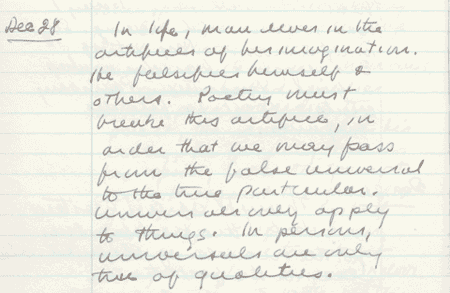 Dec 28 In life, man lives in the
artifices of his imagination.
He falsifies himself &
others. Poetry must
break this artifice, in
order that we may pass
from the false universal
to the true particular.
Universals only apply
to things. In persons,
universals are only
true of qualities.